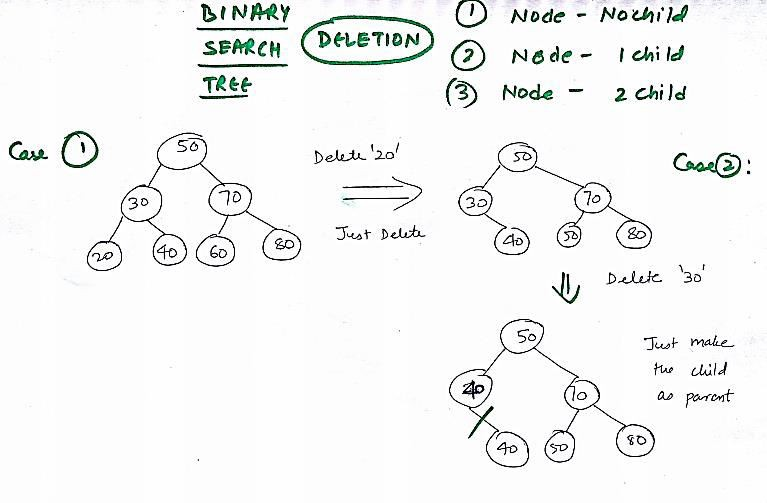 BINARY
SEARCH
TREE
DELETION
① Node - No child
② Node - 1 child
③ Node - 2 child
Case ①
50
30 70
20 40 60 80
Delete '20'
Just Delete
Case ②:
50
30 70
40 50 80
Delete '30'
50
40 70
40 50 80
Just make
the child
as parent